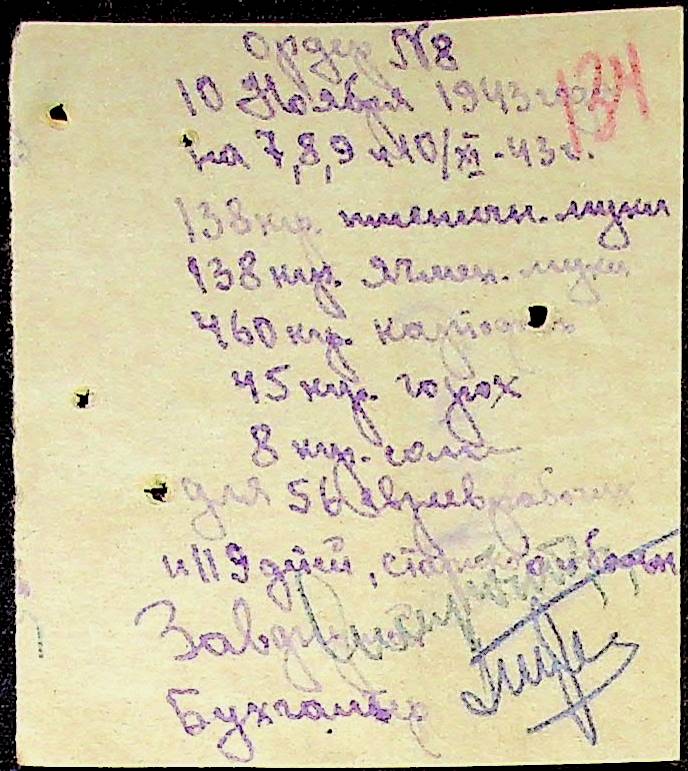 Ордер №8
134
10 Ноября 1943 года
на 7,8,9 и 10/XI-43г.
138 кгр. пшеничн. муки
138 кгр. ячмен. муки
460 кгр. картофел
45 кгр. горох
8 кгр. соли
для 56 евреев рабочих
и 119 дітей, старих и больн
Завд
Бухгалтер